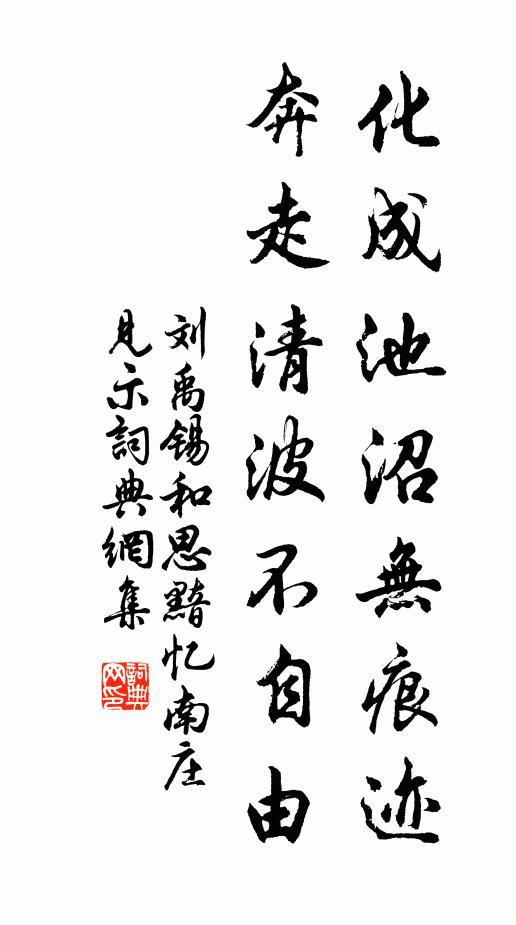 化成池沼無痕迹
奔走清波不自由
刘禹锡和思黯忆南庄
见示詞典網集
詞典网印